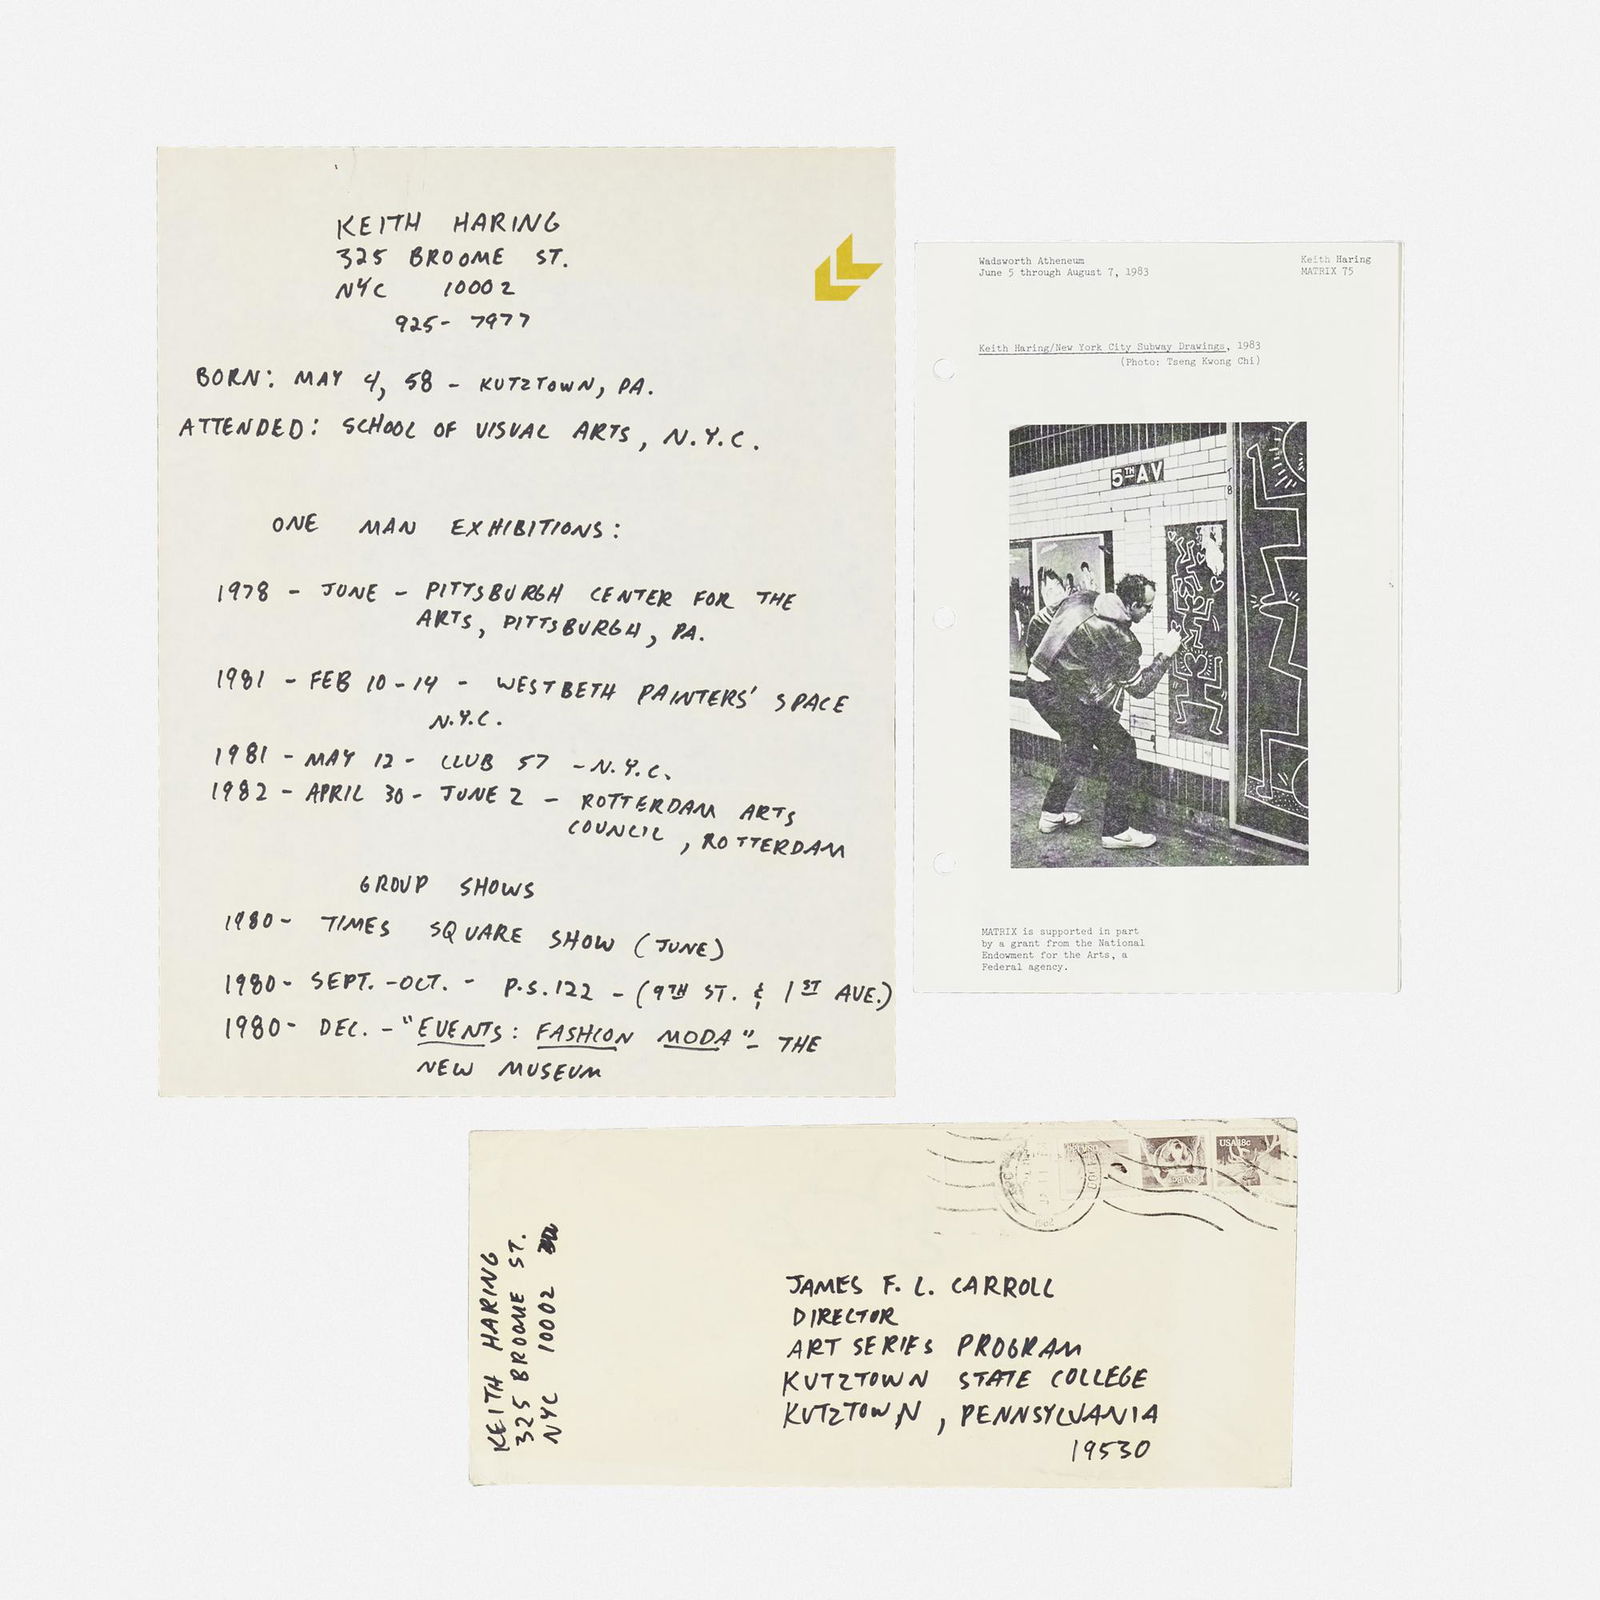 KEITH HARING
325 BROOME ST.
NYC 10002
925-7977
BORN: MAY 4, 58 - KUTZTOWN, PA.
ATTENDED: SCHOOL OF VISUAL ARTS, N.Y.C.
ONE MAN EXHIBITIONS:
1978 - JUNE - PITTSBURGH CENTER FOR THE
ARTS, PITTSBURGH, PA.
1981 - FEB 10-14 - WESTBETH PAINTERS' SPACE
N.Y.C.
1981 - MAY 12 - CLUB 57 - N.Y.C.
1982 - APRIL 30 - JUNE 2 - ROTTERDAM ARTS
COUNCIL, ROTTERDAM
GROUP SHOWS
1980- TIMES SQUARE SHOW (JUNE)
1980- SEPT.-OCT. - P.S.122 - (9TH ST. & 1ST AVE.)
1980- DEC. - "EVENTS: FASHION MODA" - THE
NEW MUSEUM
Wadsworth Atheneum
June 5 through August 7, 1983
Keith Haring
MATRIX 75
Keith Haring/New York City Subway Drawings, 1983
(Photo: Tseng Kwong Chi)
5TH AV
MATRIX is supported in part
by a grant from the National
Endowment for the Arts, a
Federal agency.
KEITH HARING
325 BROOME ST.
NYC 10002
USA 18c
1982
JAMES F. L. CARROLL
DIRECTOR
ART SERIES PROGRAM
KUTZTOWN STATE COLLEGE
KUTZTOWN, PENNSYLVANIA
19530